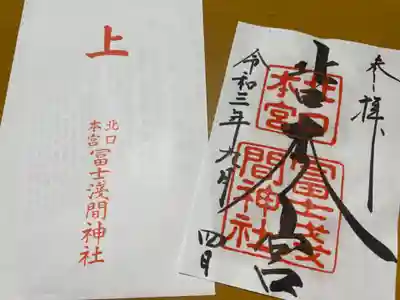 上
北口
本宮
冨士浅間神社
参拝
北口本宮
北口
本宮
冨士浅
間神社
令和三年九月四日